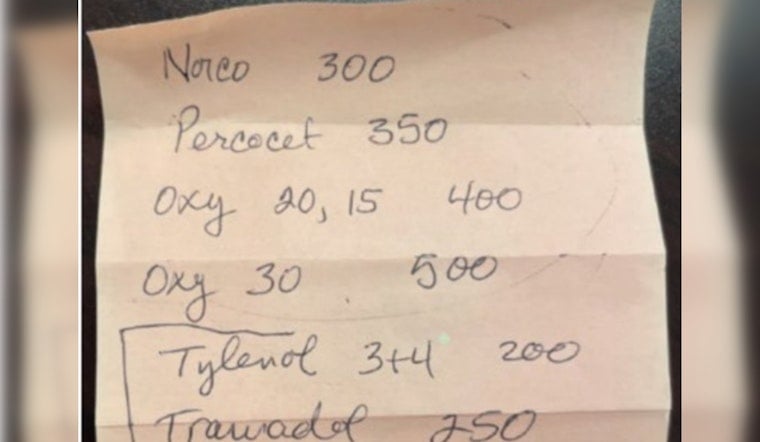 Norco 300
Percocet 350
Oxy 20, 15 400
Oxy 30 500
Tylenol 3+4 200
Tramadol 250